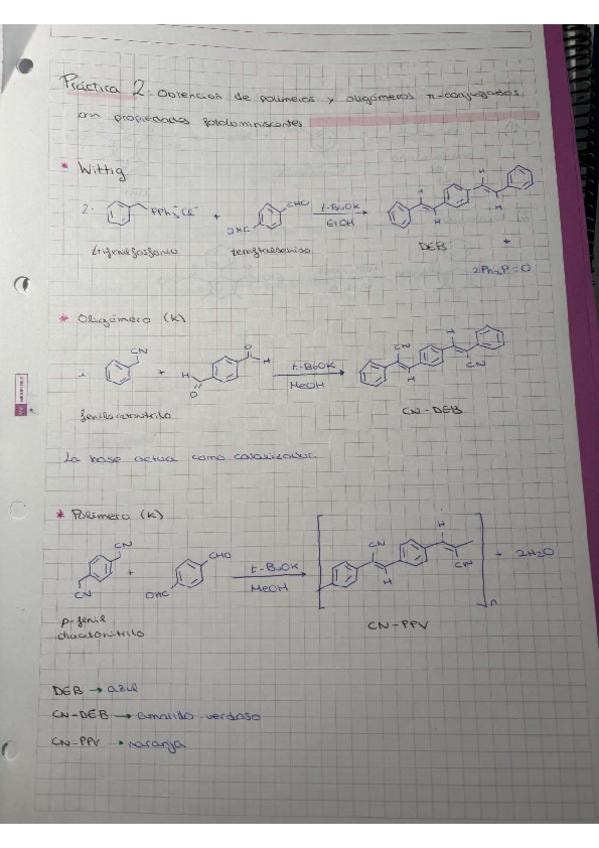 Práctica 2: Obtención de polímeros y oligómeros π-conjugados
con propiedades fotoluminiscentes
* Wittig
2. PPh3+Cl- + CHO OHC t-BuOK EtOH H H H H
trifenilfosfonio tereftaldehído DEB +
2Ph3P=O
* Oligómero (K)
CN + H O O H t-BuOK MeOH CN H H CN
fenilacetonitrilo CN-DEB
La base actua como catalizador.
* Polímero (K)
CN CN + CHO OHC t-BuOK MeOH CN H H CN n + 2H2O
p-fenil
diacetonitrilo CN-PPV
DEB → azul
CN-DEB → amarillo verdoso
CN-PPV → naranja